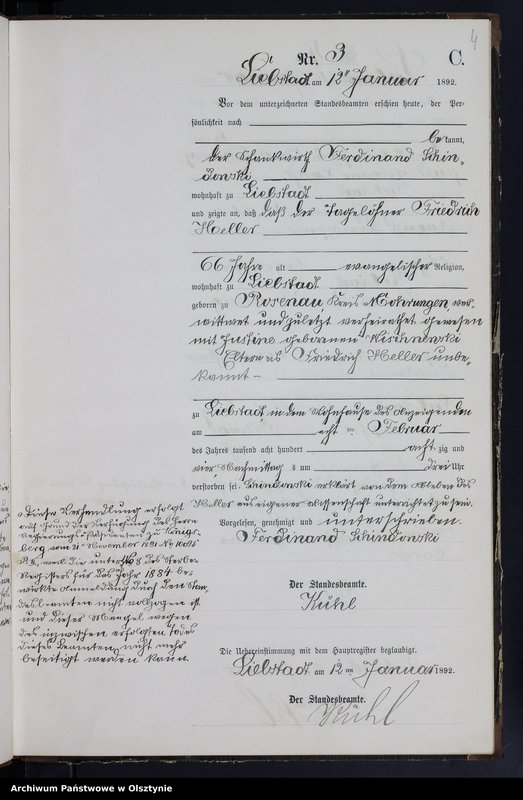 4
Nr. 3 C.
Liebstadt am 12ten Januar 1892.
Vor dem unterzeichneten Standesbeamten erschien heute, der Per-
sönlichkeit nach
bekannt,
der Schankwirth Ferdinand Schin-
dowski
wohnhaft zu Liebstadt
und zeigte an, daß daß der Tagelöhner Friedrich
Heller
66 Jahre alt evangelischer Religion,
wohnhaft zu Liebstadt
geboren zu Rosenau, Kreis Mohrungen ver-
wittwet und zuletzt verheirathet gewesen
mit Justine geborenen
Eltern als Friedrich Heller unbe-
kannt
zu Liebstadt in dem Wohnhause des Anzeigenden
am acht ten Februar
des Jahres tausend acht hundert acht zig und
vier Nachmittag s um drei Uhr
verstorben sei. Schindowski erklärt von dem Ableben des
Heller aus eigener Wissenschaft unterrichtet zu sein.
Vorgelesen, genehmigt und unterschrieben.
Ferdinand Schindowski
Der Standesbeamte.
Kühl
Diese Verhandlung erfolgt
auf Grund der Verfügung des Herrn
Regierungs-Präsidenten zu Königs-
berg vom 21ten November 1891
weil die unter No 8 des Sterbe-
Registers für das Jahr 1884 be-
wirkte Anmeldung durch den Stan-
desbeamten nicht vollzogen ist
und dieser Mangel wegen
des inzwischen erfolgten Todes
dieses Beamten nicht mehr
beseitigt werden kann.
Die Uebereinstimmung mit dem Hauptregister beglaubigt.
Liebstadt am 12 ten Januar 1892.
Der Standesbeamte.
Kühl
Archiwum Państwowe w Olsztynie